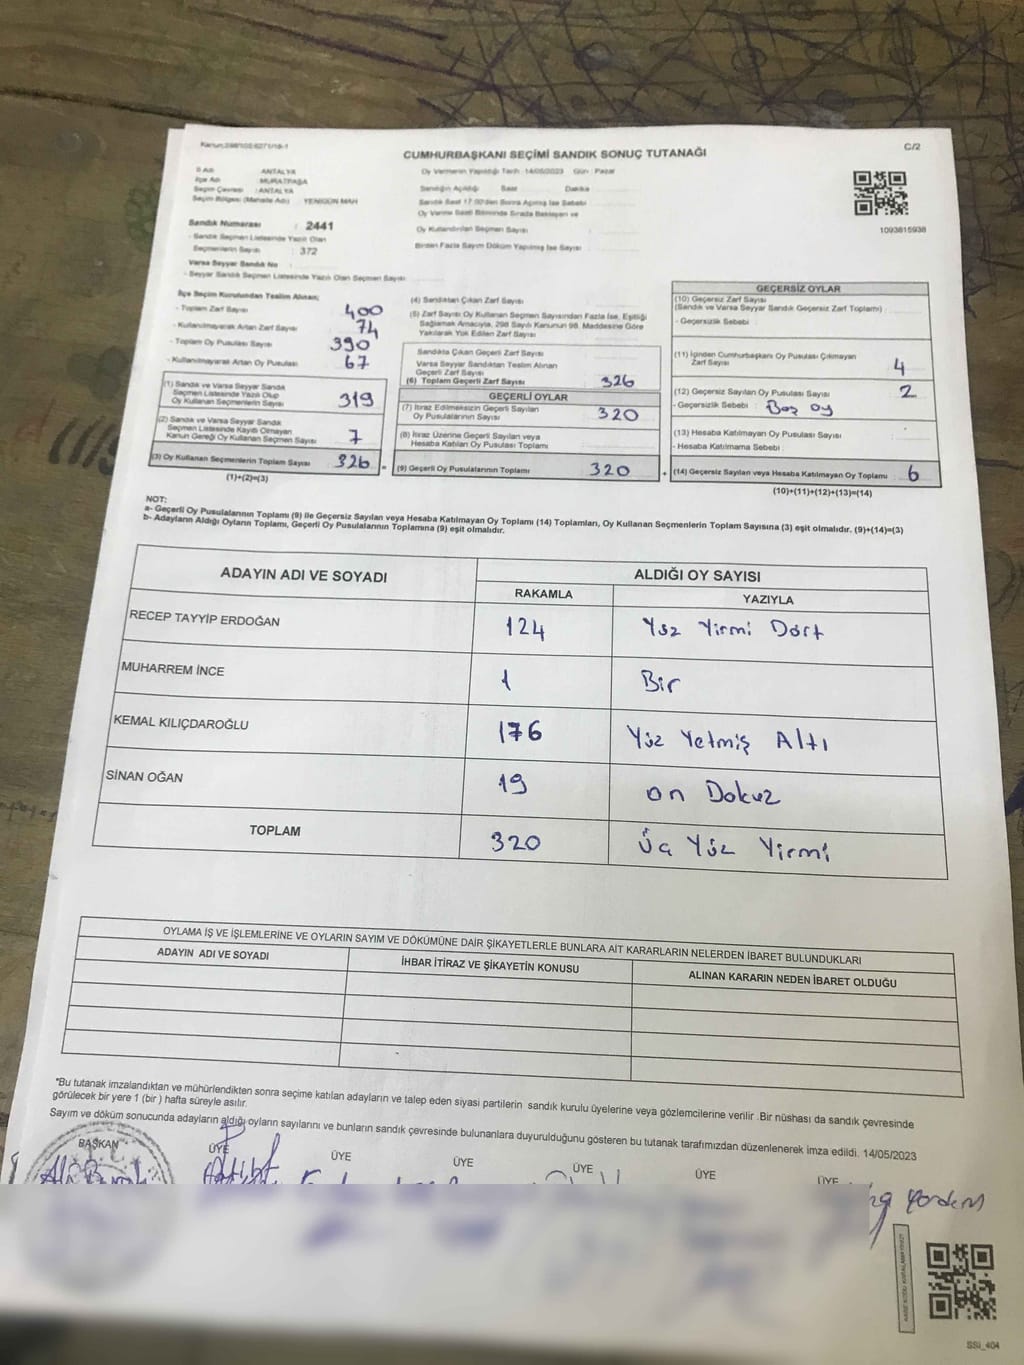 Kanun:298/102;6271/18-1
C/2
CUMHURBAŞKANI SEÇİMİ SANDIK SONUÇ TUTANAĞI
İl Adı : ANTALYA
İlçe Adı : MURATPAŞA
Seçim Çevresi : ANTALYA
Seçim Bölgesi (Mahalle Adı) : YENİGÜN MAH
Oy Vermenin Yapıldığı Tarih : 14/05/2023 Gün : Pazar
Sandığın Açıldığı Saat Dakika
Sandık Saat 17:00'den Sonra Açılmış İse Sebebi
Oy Verme Saati Bitiminde Sırada Bekleyen ve
Oy Kullandırılan Seçmen Sayısı
Birden Fazla Sayım Döküm Yapılmış İse Sayısı
1093815938
Sandık Numarası : 2441
- Sandık Seçmen Listesinde Yazılı Olan
Seçmenlerin Sayısı : 372
Varsa Seyyar Sandık No
- Seyyar Sandık Seçmen Listesinde Yazılı Olan Seçmen Sayısı
İlçe Seçim Kurulundan Teslim Alınan;
- Toplam Zarf Sayısı 400
- Kullanılmayarak Artan Zarf Sayısı 74
- Toplam Oy Pusulası Sayısı 390
- Kullanılmayarak Artan Oy Pusulası 67
(1) Sandık ve Varsa Seyyar Sandık
Seçmen Listesinde Yazılı Olup
Oy Kullanan Seçmenlerin Sayısı 319
(2) Sandık ve Varsa Seyyar Sandık
Seçmen Listesinde Kayıtlı Olmayan
Kanun Gereği Oy Kullanan Seçmen Sayısı 7
(3) Oy Kullanan Seçmenlerin Toplam Sayısı 326
(1)+(2)=(3)
(4) Sandıktan Çıkan Zarf Sayısı
(5) Zarf Sayısı Oy Kullanan Seçmen Sayısından Fazla İse, Eşitliği
Sağlamak Amacıyla, 298 Sayılı Kanunun 98. Maddesine Göre
Yakılarak Yok Edilen Zarf Sayısı
Sandıkta Çıkan Geçerli Zarf Sayısı
Varsa Seyyar Sandıktan Teslim Alınan
Geçerli Zarf Sayısı
(6) Toplam Geçerli Zarf Sayısı 326
GEÇERLİ OYLAR
(7) İtiraz Edilmeksizin Geçerli Sayılan
Oy Pusulalarının Sayısı 320
(8) İtiraz Üzerine Geçerli Sayılan veya
Hesaba Katılan Oy Pusulası Toplamı
(9) Geçerli Oy Pusulalarının Toplamı 320
GEÇERSİZ OYLAR
(10) Geçersiz Zarf Sayısı
(Sandık ve Varsa Seyyar Sandık Geçersiz Zarf Toplamı) :
- Geçersizlik Sebebi :
(11) İçinden Cumhurbaşkanı Oy Pusulası Çıkmayan
Zarf Sayısı 4
(12) Geçersiz Sayılan Oy Pusulası Sayısı 2
- Geçersizlik Sebebi : Boş oy
(13) Hesaba Katılmayan Oy Pusulası Sayısı
- Hesaba Katılmama Sebebi
(14) Geçersiz Sayılan veya Hesaba Katılmayan Oy Toplamı 6
(10)+(11)+(12)+(13)=(14)
NOT:
a- Geçerli Oy Pusulalarının Toplamı (9) ile Geçersiz Sayılan veya Hesaba Katılmayan Oy Toplamı (14) Toplamları, Oy Kullanan Seçmenlerin Toplam Sayısına (3) eşit olmalıdır. (9)+(14)=(3)
b- Adayların Aldığı Oyların Toplamı, Geçerli Oy Pusulalarının Toplamına (9) eşit olmalıdır.
ADAYIN ADI VE SOYADI
ALDIĞI OY SAYISI
RAKAMLA YAZIYLA
RECEP TAYYİP ERDOĞAN 124 Yüz Yirmi Dört
MUHARREM İNCE 1 Bir
KEMAL KILIÇDAROĞLU 176 Yüz Yetmiş Altı
SİNAN OĞAN 19 on Dokuz
TOPLAM 320 Üç Yüz Yirmi
OYLAMA İŞ VE İŞLEMLERİNE VE OYLARIN SAYIM VE DÖKÜMÜNE DAİR ŞİKAYETLERLE BUNLARA AİT KARARLARIN NELERDEN İBARET BULUNDUKLARI
ADAYIN ADI VE SOYADI İHBAR İTİRAZ VE ŞİKAYETİN KONUSU ALINAN KARARIN NEDEN İBARET OLDUĞU
"Bu tutanak imzalandıktan ve mühürlendikten sonra seçime katılan adayların ve talep eden siyasi partilerin sandık kurulu üyelerine veya gözlemcilerine verilir .Bir nüshası da sandık çevresinde
görülecek bir yere 1 (bir ) hafta süreyle asılır.
Sayım ve döküm sonucunda adayların aldığı oyların sayılarını ve bunların sandık çevresinde bulunanlara duyurulduğunu gösteren bu tutanak tarafımızdan düzenlenerek imza edildi. 14/05/2023
BAŞKAN ÜYE ÜYE ÜYE ÜYE ÜYE ÜYE
SSI_404